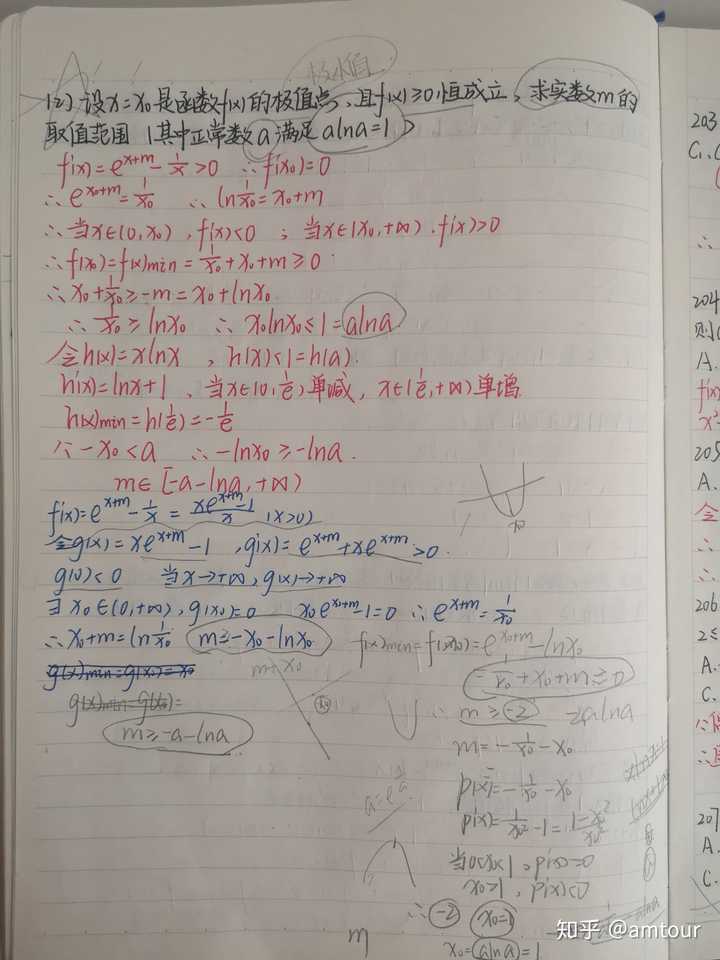 极小值
(2) 设x=x₀是函数f(x)的极值点，且f(x)≥0恒成立，求实数m的
取值范围（其中正常数a满足alna=1）
f'(x)=e^{x+m}-1/x>0 ∴f'(x₀)=0
∴e^{x₀+m}=1/x₀ ∴ln1/x₀=x₀+m
∴当x∈(0,x₀),f'(x)<0 ; 当x∈(x₀,+∞).f'(x)>0
∴f(x₀)=f(x)min=1/x₀+x₀+m≥0
∴x₀+1/x₀≥-m=x₀+lnx₀
∴1/x₀≥lnx₀ ∴x₀lnx₀≤1=alna
令h(x)=xlnx , h(x)<1=h(a).
h'(x)=lnx+1 , 当x∈(0,1/e)单减, x∈(1/e,+∞)单增.
h(x)min=h(1/e)=-1/e
∵-x₀<a ∴-lnx₀≥-lna.
m∈[-a-lna,+∞)
f'(x)=e^{x+m}-1/x=(xe^{x+m}-1)/x (x>0)
令g(x)=xe^{x+m}-1 ,g'(x)=e^{x+m}+xe^{x+m}>0.
g(0)<0 当x→+∞,g(x)→+∞
∃x₀∈(0,+∞),g(x₀)=0 x₀e^{x₀+m}-1=0 ∴e^{x+m}=1/x₀
∴x₀+m=ln1/x₀ m=-x₀-lnx₀
g(x)min=g(x₀)=x₀
g(x)min=g(x₀)=
m≥-a-lna
x₀
f(x)min=f(x₀)=e^{x₀+m}-lnx₀
=1/x₀+x₀+m≥0
∴m≥-2 =alna
m=-1/x₀-x₀
p(x)=-1/x₀-x₀
p'(x)=1/x₀²-1=(1-x₀²)/x₀²
当0<x₀<1,p'(x)>0
x₀>1,p'(x)<0
∴-2 x₀=1
x₀=alna=1
m
203
204
则
A.
205
A.
令
206
A.
C.
207
A.
C.
知乎 @amtour